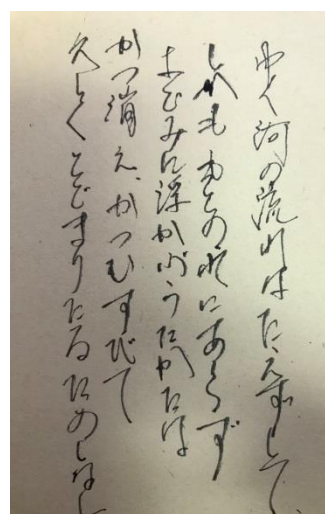 ゆく河の流れはたえずして、
しかももとの水にあらず
よどみに浮かぶうたかたは
かつ消え、かつむすびて
久しくとどまりたるためしなし